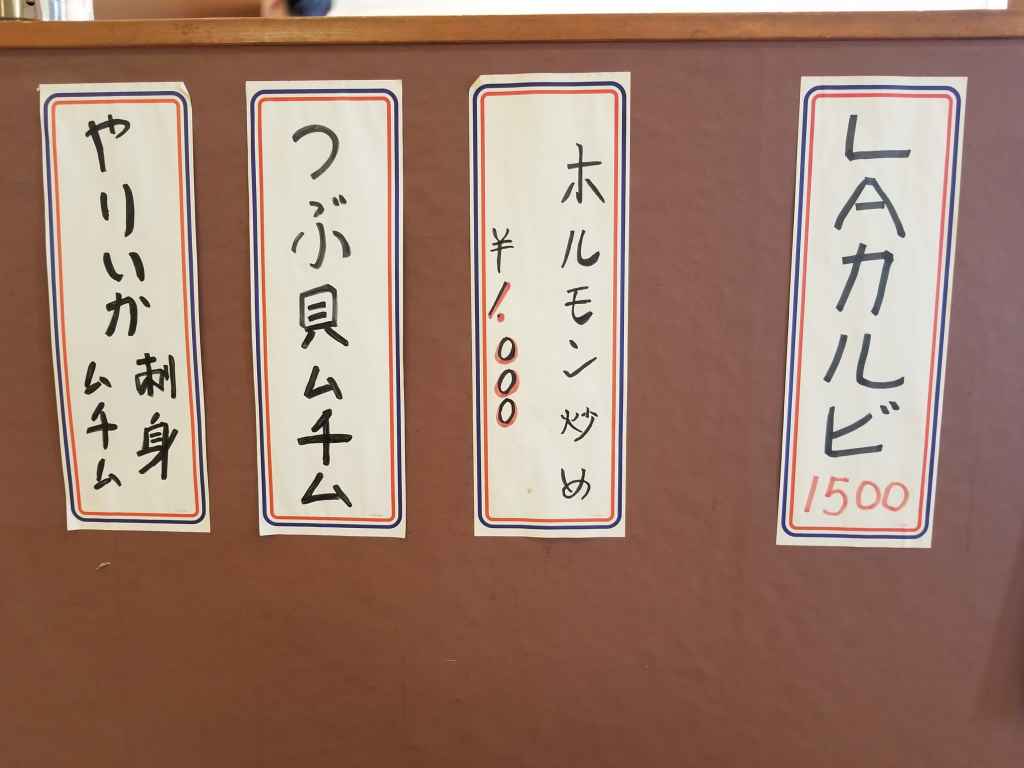 LAカルビ
1500
ホルモン炒め
¥1.000
つぶ貝ムチム
やりいか
刺身
ムチム